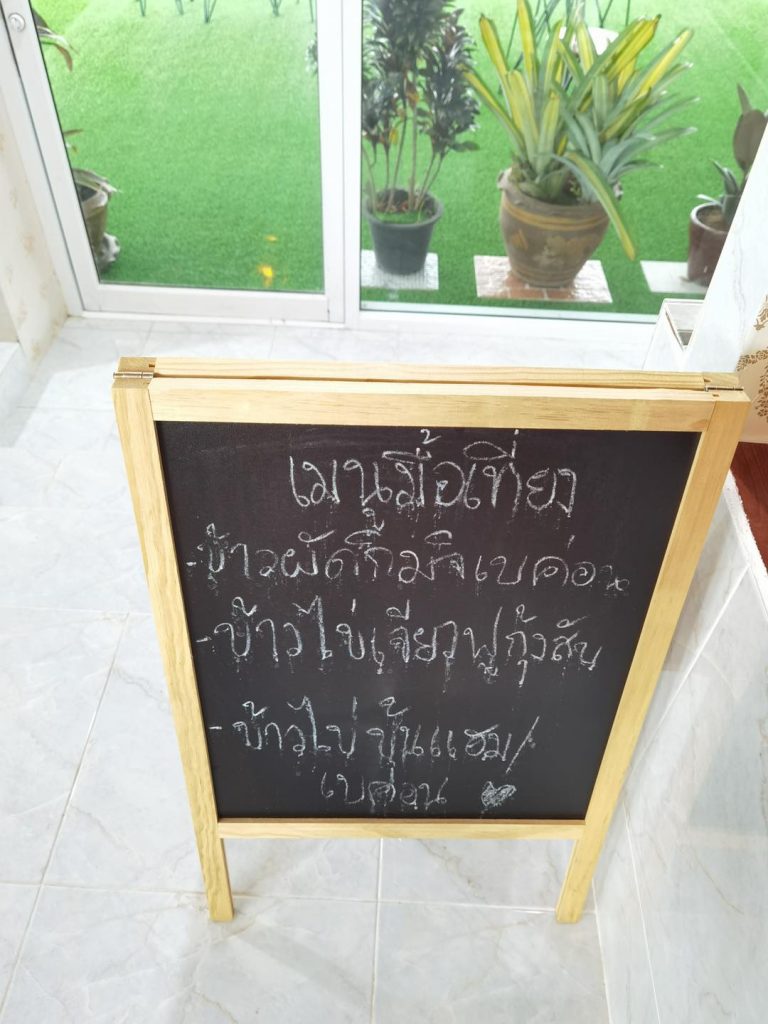 เมนูมื้อเที่ยง
-ข้าวผัดกิมจิเบค่อน
-ข้าวไข่เจียวฟูกุ้งสับ
-ข้าวไข่ข้นแฮม/
เบค่อน